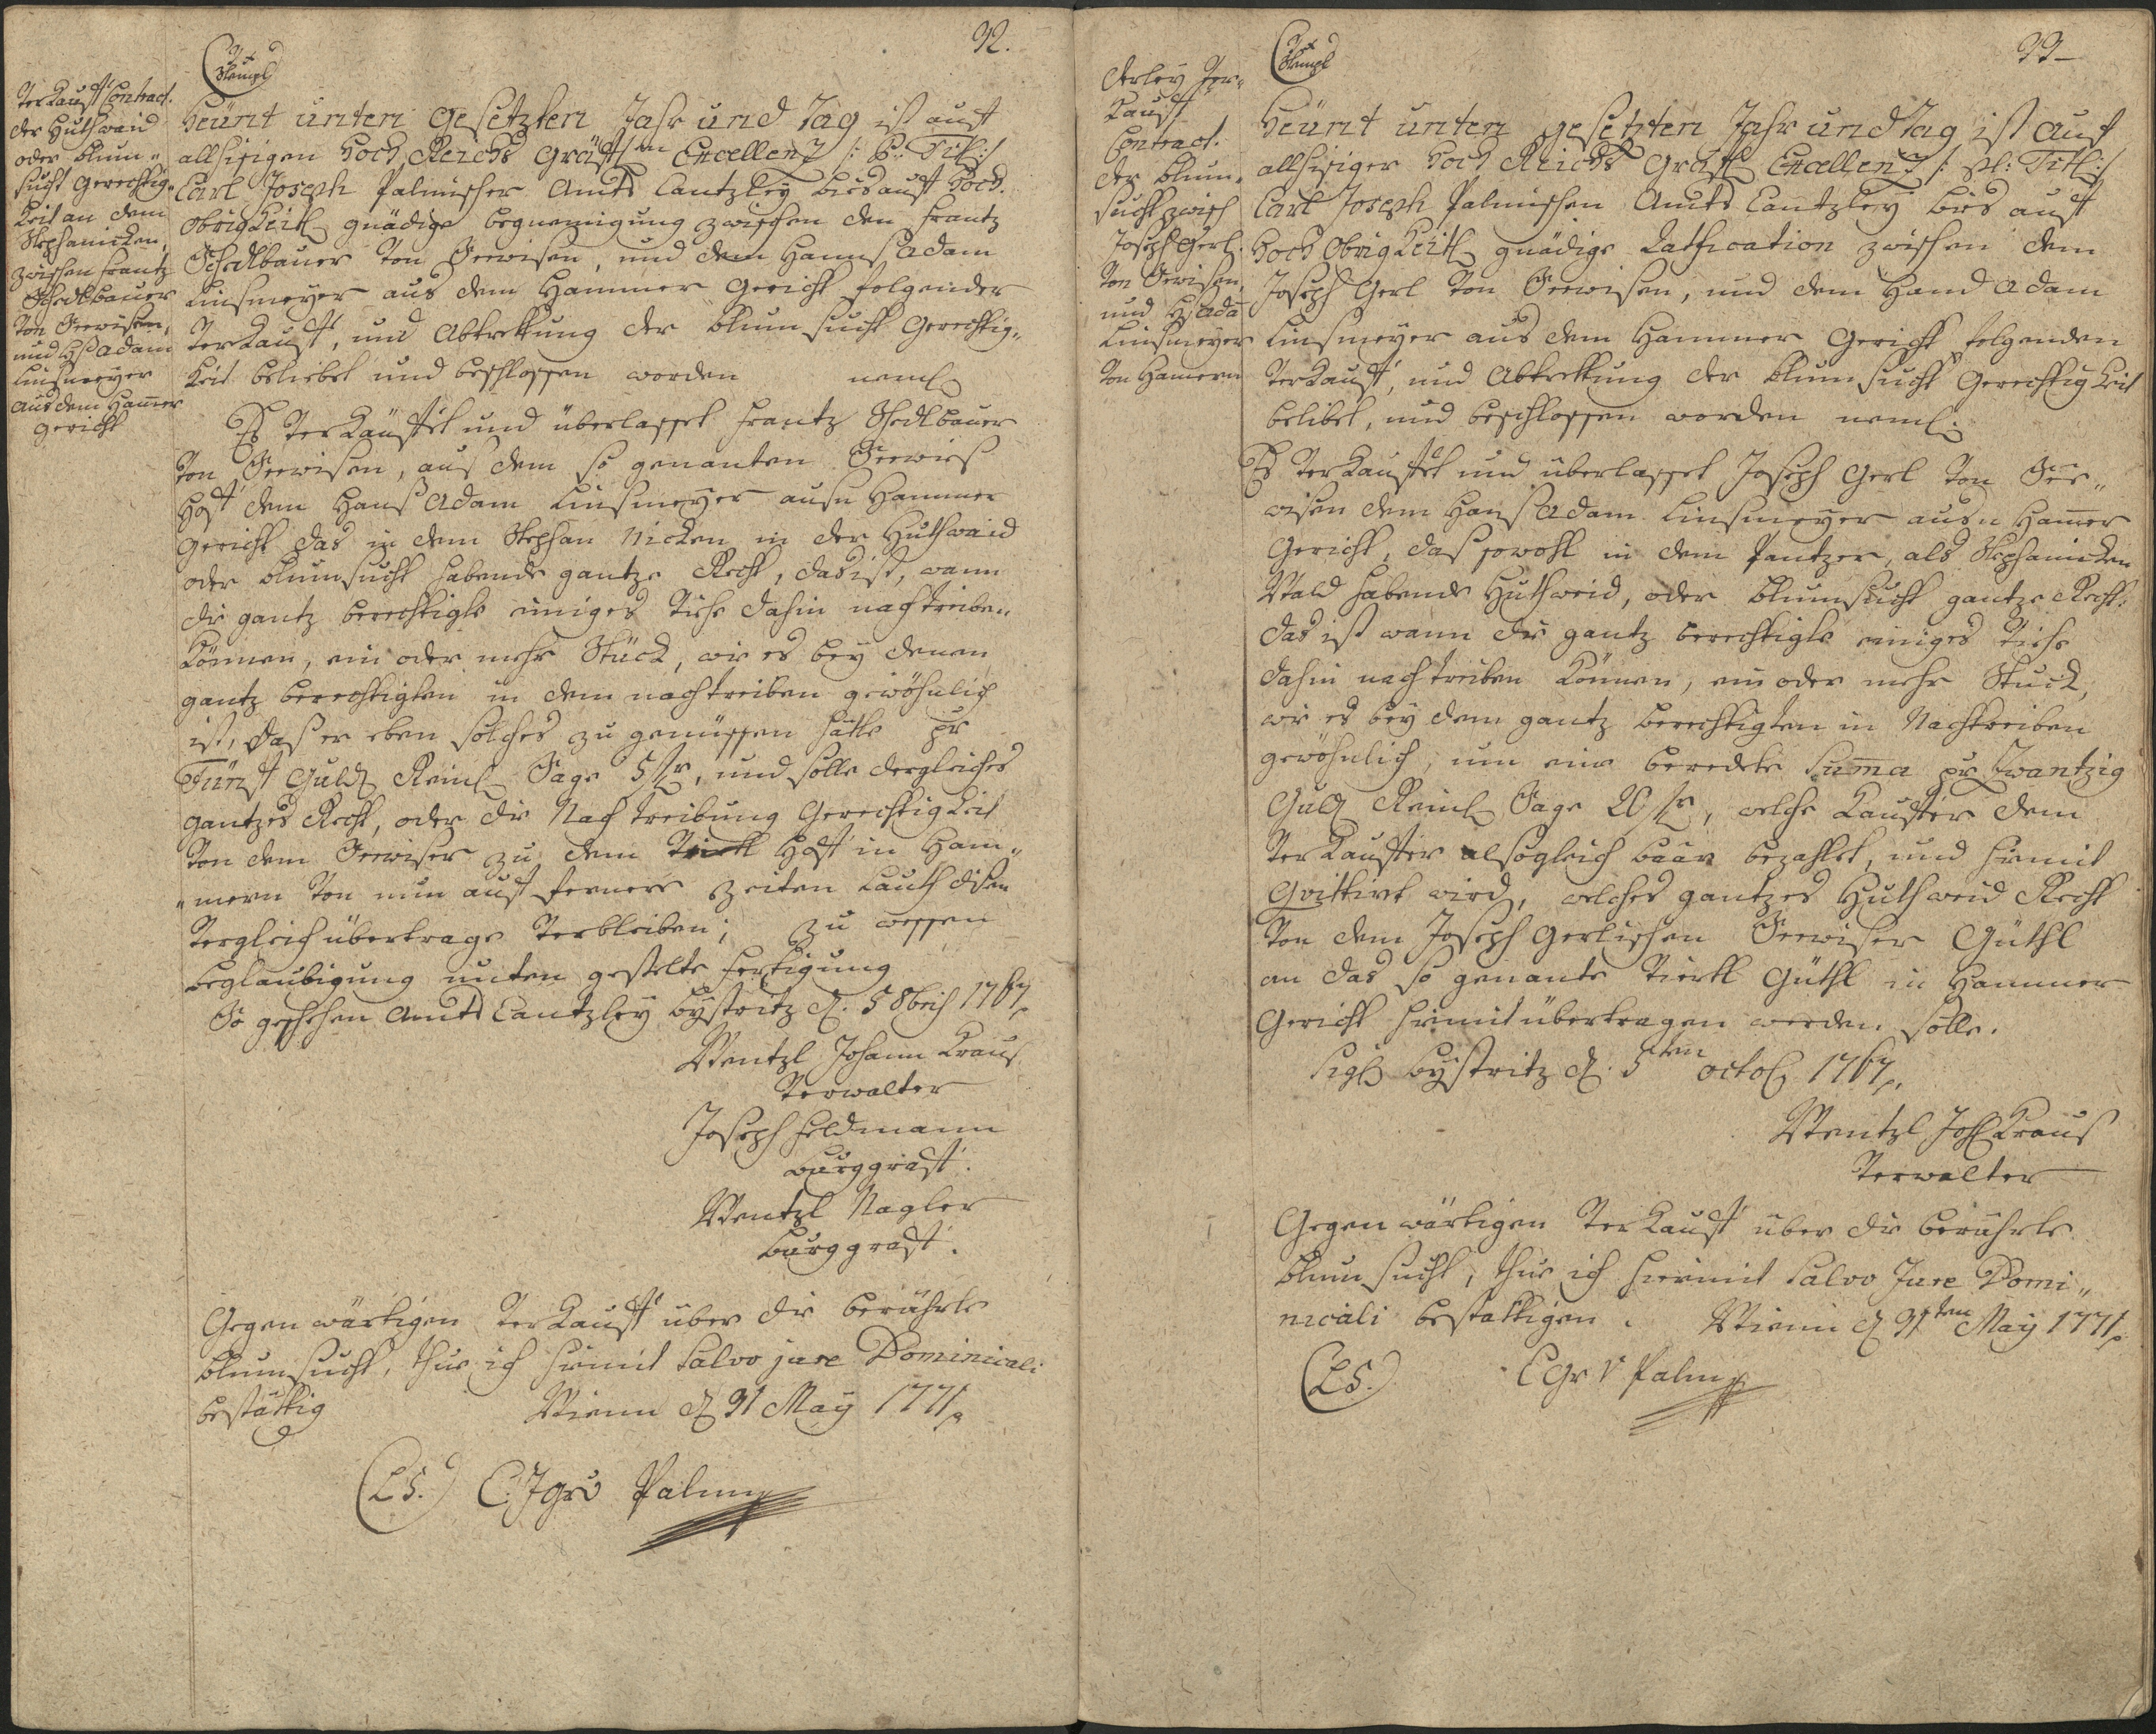 32.
Stempl
VerKauff Contract.
der Huthwaid
oder blum„
sucht Gerechtig„
Keit an dem
Stephanicken,
zwischen Frantz
Schedlbauer
von Seewisen,
und Hß Adam
Linsmeyer
aus dem Ham̄er
gericht
Heünt unten gesetzten Jahr und Tag ist auff
allhisigen Hoch Reichs Gräffl.en Excellentz /: P: Titl: /
Carl Joseph Palmischer Amts Cantzley bis auff Hoch
Obrigkeitl gnädige begnemigung zwischen den Frantz
Schedlbauer von Seewisen, und dem Hanns Adam
Linsmeyer aus dem Hammer Gericht folgender
VerKauff, und Abtrettung der blumsucht Gerechtig„
Keit beliebet und beschlossen worden neml
Es verKauffet und überlasset Frantz Schedlbauer
von Seewisen, aus dem so genanten Seewies
Hoff dem Hanß Adam Linsmeyer ausn Hammer
Gericht das in dem Stephan Nicken in der Huthwaid
oder blumsucht habende gantze Recht, das ist, wann
die gantz berechtigte einiges Viehe dahin nachtreiben
Können, ein oder mehr Stück, wie es bey denen
gantz berechtigten in dem nachtreiben gewöhnlich
ist, daß er eben solches zu genüssen hätte pr
Fünff Guld Reinl Sage 5 fr, und solle dergleiches
gantzes Recht, oder die Nachtreibung GerechtigKeit
von dem Seewiser zu dem Vierkl Hoff in Ham„
„mern von nun auff fernere zeiten Lauth disen
Vergleich übertrage verbleiben; zu wessen
beglaubigung unten gestelte fertigung
So geschehen Amts Cantzley bystritz d. 5 8bris 1767.
Wentzl Johann Kraus
Verwalter
Joseph Feldmann
burggraff.
Wentzl Nagler
burggraff.
Gegenwärtigen VerKauff über die berührte
blumsucht, thue ich hiemit Salvo jure Dominicali
bestättig Wienn d 31 May 1771.
(LS.) C. J gr v Palm
33
Stempl
derley Ver„
Kauff
Contract.
der blum„
sucht zwisch
Joseph Gerl.
von Seewisen
und Hß Ada
Linsmeyer
von Hamern
Heünt unten gesetzten Jahr und Tag ist auf
allhisiger Hoch Reichs Gräffl Excellentz /: Pl: Titl: /
Carl Joseph Palmischen Amts Cantzley bis auff
Hoch ObrigKeitl gnädige Ratification zwischen dem
Joseph Gerl von Seewisen, und dem Hans Adam
Linsmeyer aus dem Hammer Gericht folgenden
VerKauff, und Abtrettung der blumsucht GerechtigKeit
belibet, und beschlossen worden neml.
Es verKauffet und überlasset Joseph Gerl von See„
wisen dem Hanß Adam Linsmeyer ausn Ham̄er
Gericht, daß sowohl in dem Pantzer, als Stephanicken
Wald habende Huthweid, oder blumsucht gantze Recht,
das ist wann die gantz berechtigte einiges Viehe
dahin nachtreiben Können, ein oder mehr Stuck,
wie es bey dem gantz berechtigten in Nachtreiben
gewöhnlich, um eine beredete Sum̄a pr Zwantzig
Guld Reinl Sage 20 fr, welche Kauffer dem
VerKauffer alsogleich baar bezahlet, und hiemit
Qvittirt wird, welches gantzes Huthweid Recht
von dem Joseph Gerlischen Seewiser Güthl
an das so genante Vierkl Güthl in Hammer
Gericht hiemit übertragen werden solle.
Sigl bystritz d. 5ten octob 1767.
Wentzl Joh Kraus
Verwalter
Gegenwärtigen VerKauff über die berührte
blumsucht, thue ich hiermit Salvo Jure Domi„
nicali bestattigen. Wienn d 31ten May 1771.
(LS.) C Gr v Palm